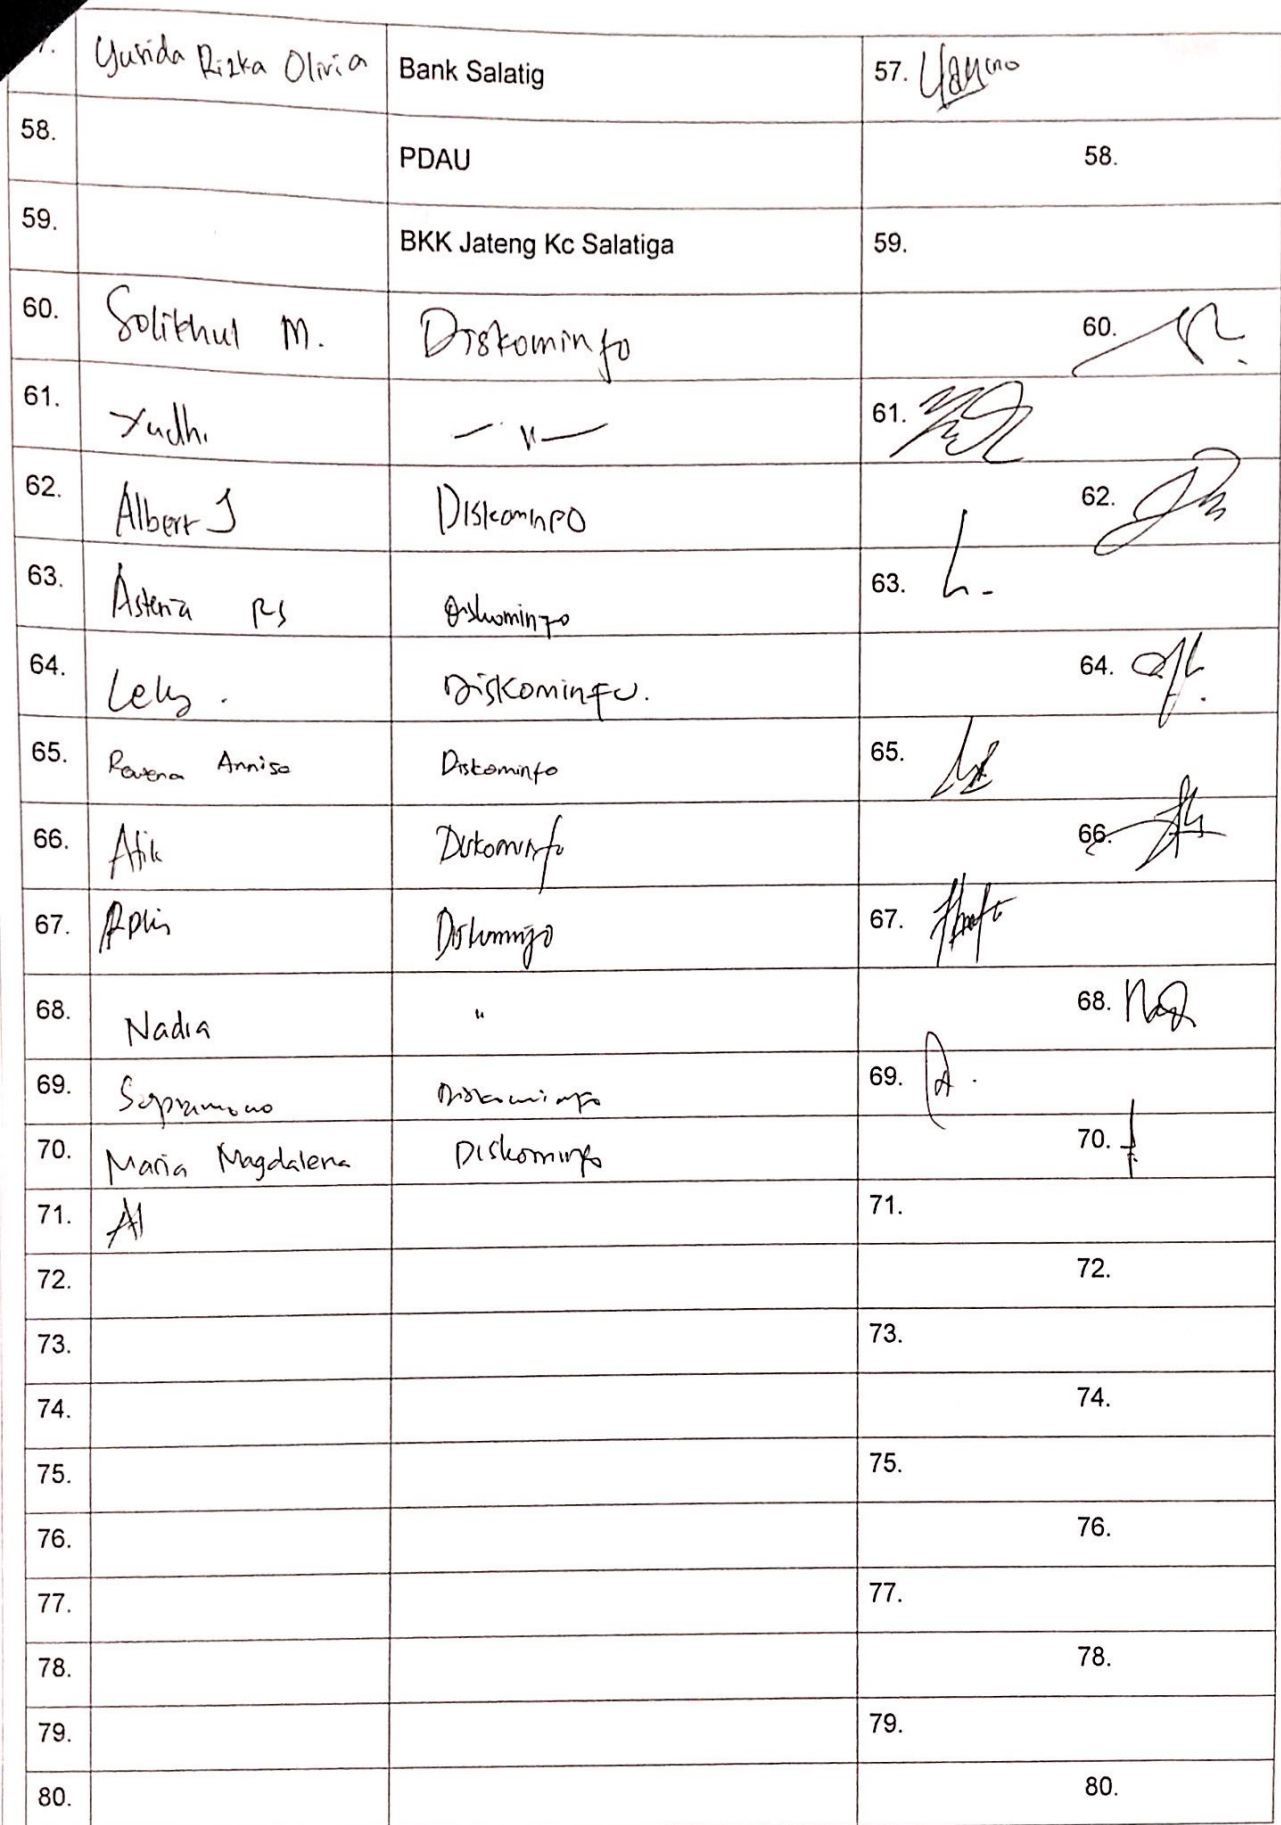 7. Yusida Rizka Olivia Bank Salatig 57.
58. PDAU 58.
59. BKK Jateng Kc Salatiga 59.
60. Solikhul M. Diskominfo 60.
61. Yudhi — " — 61.
62. Albert J Diskominfo 62.
63. Asteria RS Diskominfo 63.
64. Lely . Diskominfo. 64.
65. Annisa Diskominfo 65.
66. Atik Diskominfo 66.
67. Diskominfo 67.
68. Nadia " 68.
69. Diskominfo 69.
70. Maria Magdalena Diskominfo 70.
71. Al 71.
72. 72.
73. 73.
74. 74.
75. 75.
76. 76.
77. 77.
78. 78.
79. 79.
80. 80.